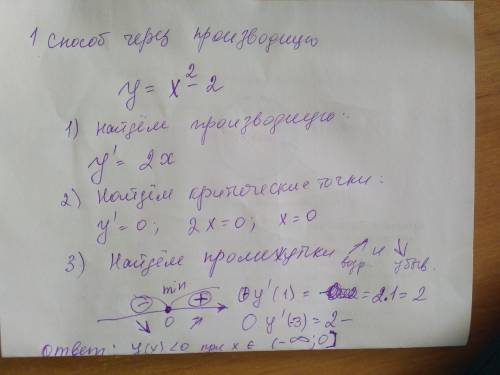 1 способ через производную
y = x² - 2
1) Найдём производную:
y' = 2x
2) Найдём критические точки:
y' = 0; 2x = 0; x = 0
3) Найдём промежутки ↗ и ↘
возр. убыв.
min
⊖ ⊕ y'(1) = = 2·1 = 2
↘ 0 ↗ y'(-3) = 2 -
Ответ: y(x) < 0 при x ∈ (-∞; 0]